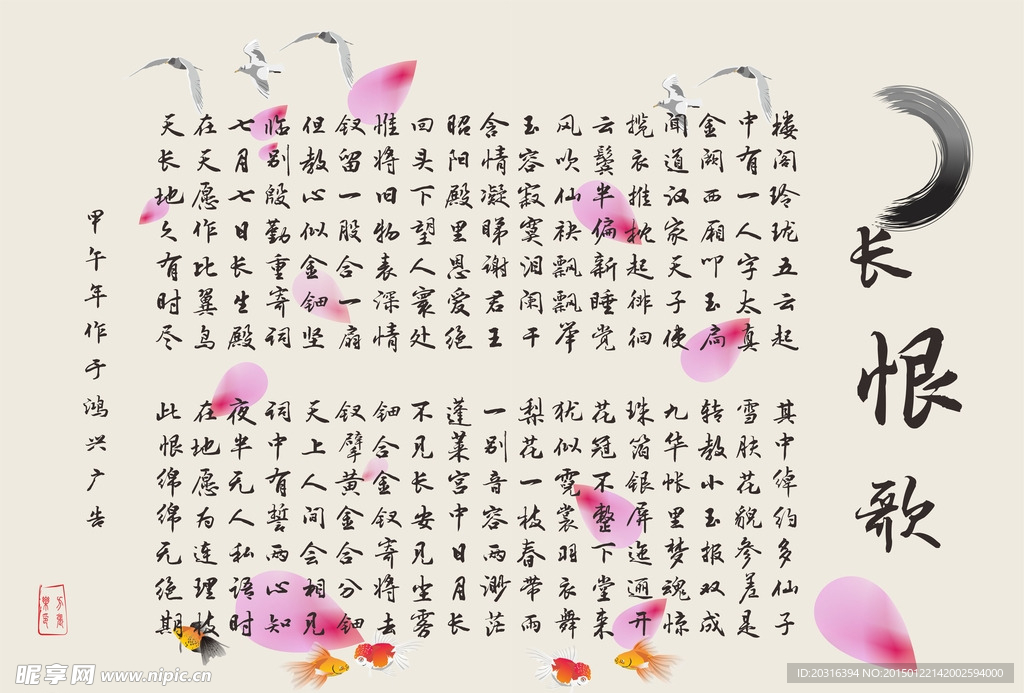 长恨歌
楼阁玲珑五云起 其中绰约多仙子
中有一人字太真 雪肤花貌参差是
金阙西厢叩玉扃 转教小玉报双成
闻道汉家天子使 九华帐里梦魂惊
揽衣推枕起徘徊 珠箔银屏迤逦开
云鬓半偏新睡觉 花冠不整下堂来
风吹仙袂飘飘举 犹似霓裳羽衣舞
玉容寂寞泪阑干 梨花一枝春带雨
含情凝睇谢君王 一别音容两渺茫
昭阳殿里恩爱绝 蓬莱宫中日月长
回头下望人寰处 不见长安见尘雾
惟将旧物表深情 钿合金钗寄将去
钗留一股合一扇 钗擘黄金合分钿
但教心似金钿坚 天上人间会相见
临别殷勤重寄词 词中有誓两心知
七月七日长生殿 夜半无人私语时
在天愿作比翼鸟 在地愿为连理枝
天长地久有时尽 此恨绵绵无绝期
甲午年作于鸿兴广告
昵享网 www.nipic.cn
ID:20316394 NO:20150122142002594000